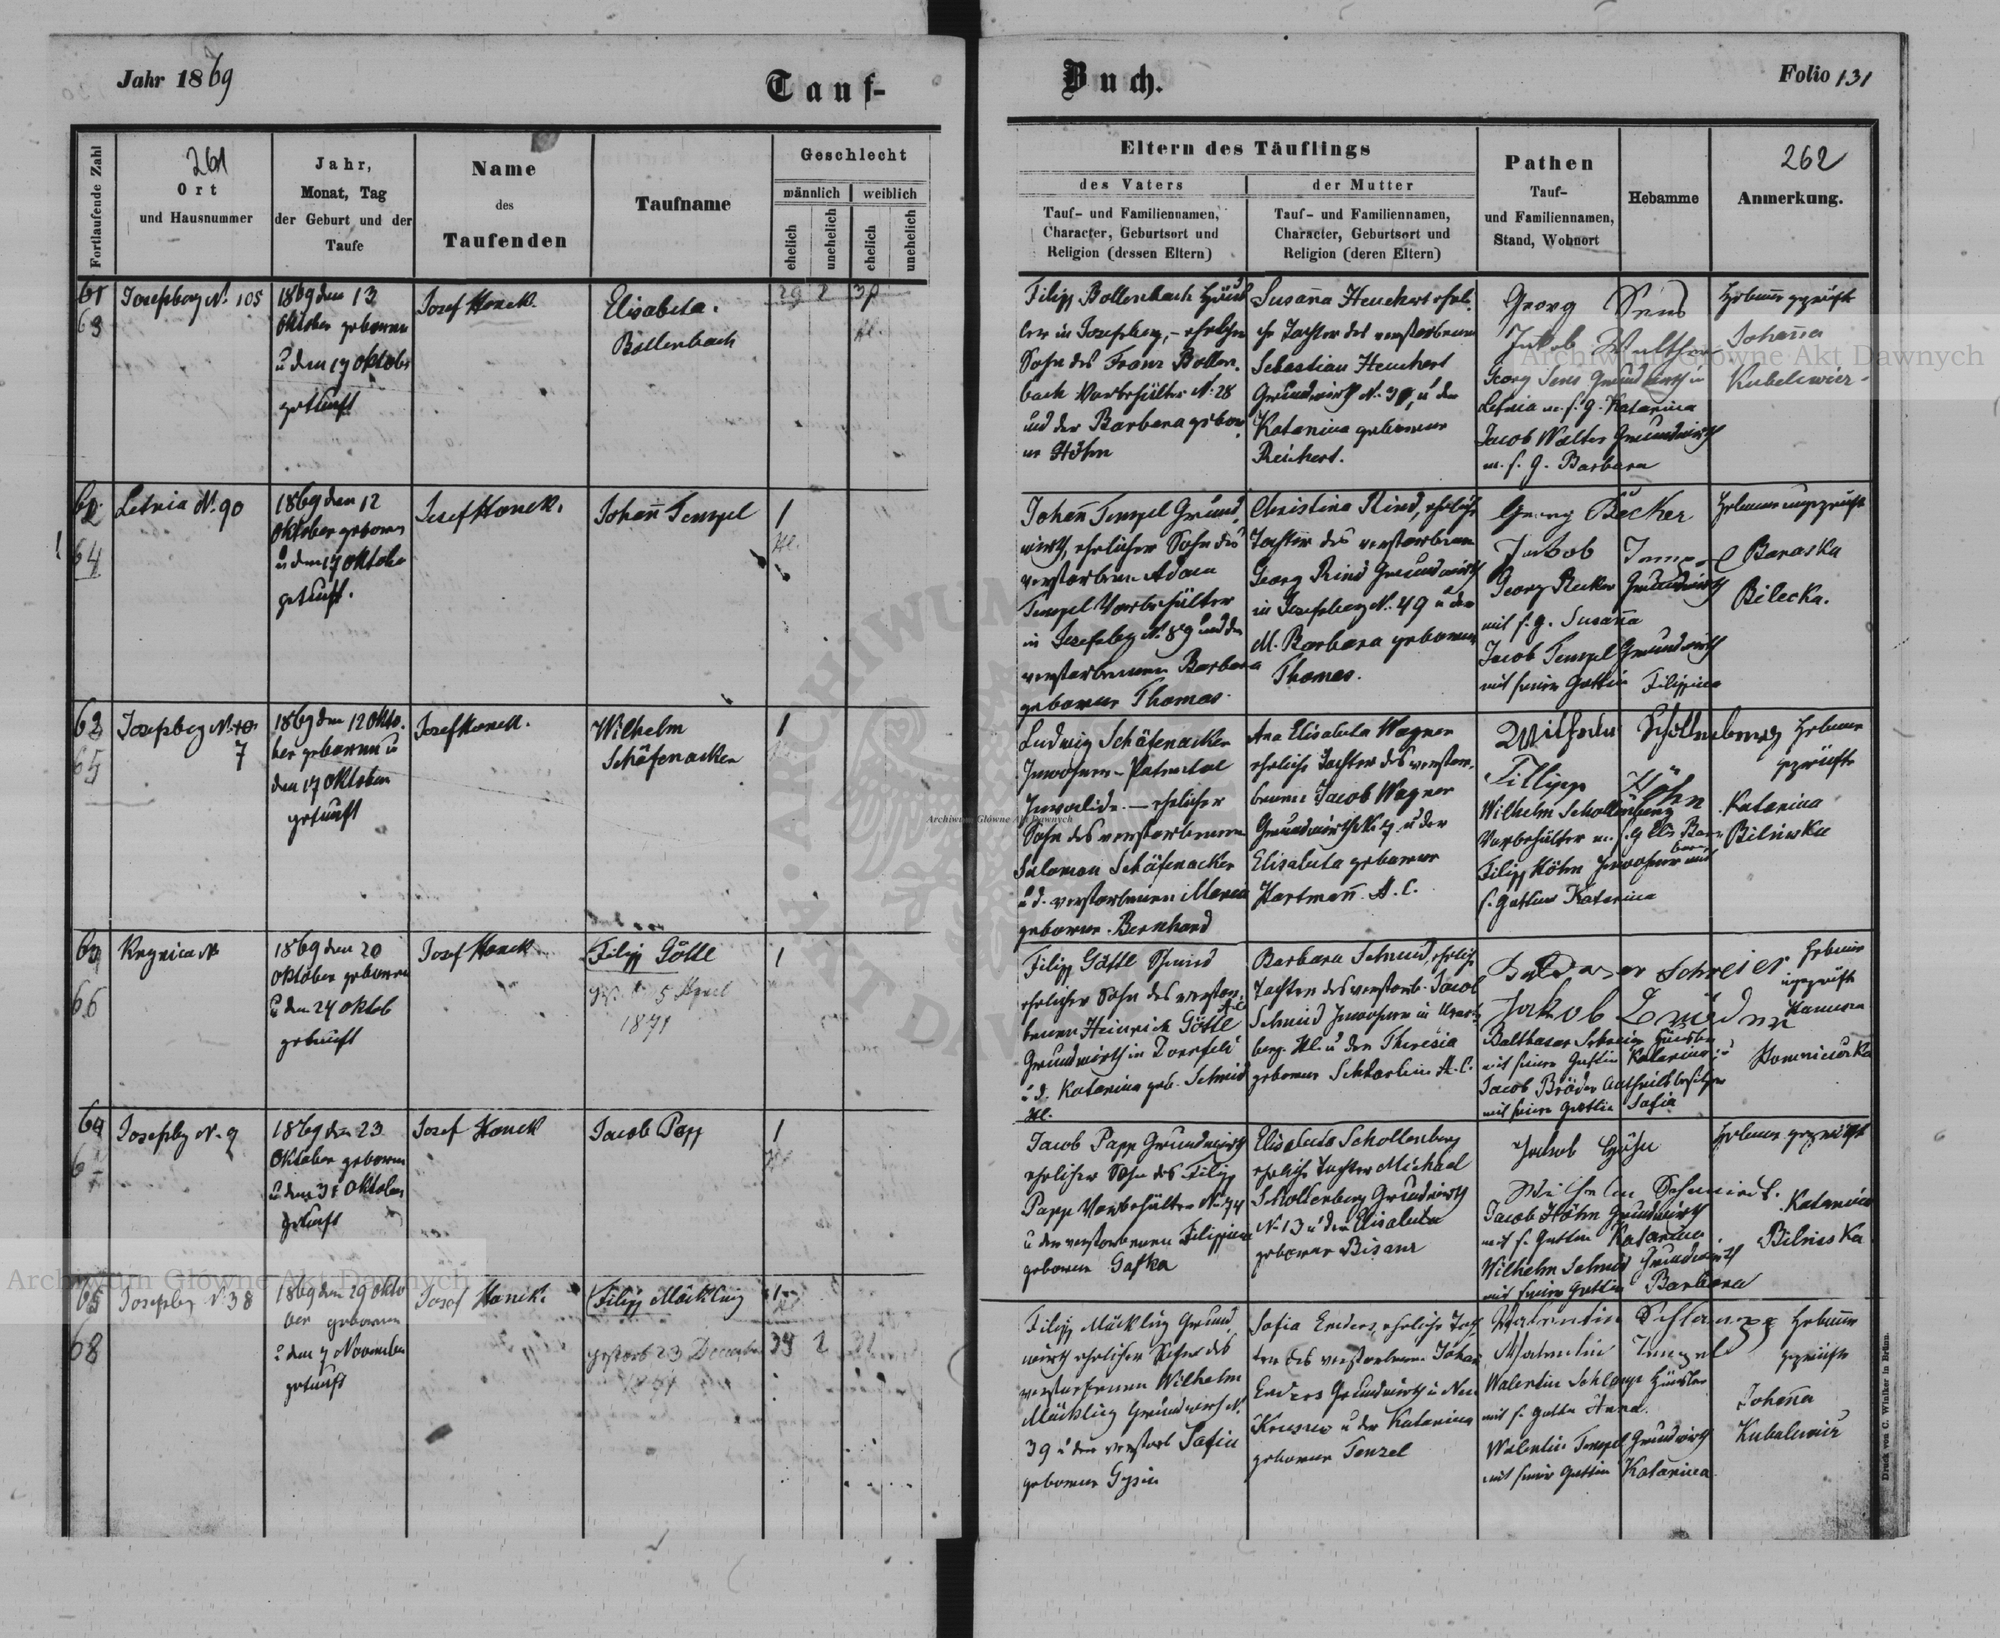 Jahr 1869
Tauf-
Buch.
Folio 131
Fortlaufende Zahl
261
Ort
und Hausnummer
Jahr,
Monat, Tag
der Geburt und der
Taufe
Name
des
Taufenden
Taufname
Geschlecht
männlich
weiblich
ehelich
unehelich
ehelich
unehelich
Eltern des Täuflings
des Vaters
Tauf- und Familiennamen,
Character, Geburtsort und
Religion (dessen Eltern)
der Mutter
Tauf- und Familiennamen,
Character, Geburtsort und
Religion (deren Eltern)
Pathen
Tauf-
und Familiennamen,
Stand, Wohnort
Hebamme
262
Anmerkung.
61
63
Josefsberg N. 105
1869 den 13
Oktober geboren
u den 17 Oktober
getauft
Josef Honek.
Elisabeta.
Bollenbach
29 2 39
Filipp Bollenbach Häus
ler in Josefsberg, - ehelicher
Sohn des Franz Bollen.
bach Vorbehälter N. 28
und der Barbara gebor
ne Höhn
Susanna Heuchert eheli
che Tochter des verstorbenen
Sebastian Heuchert
Grundwirth N. 39, u der
Katarina geborene
Reichert.
Georg Sens
Jakob Walther
Georg Sens Grundwirth in
Letnia m. s. g. Katarina
Jacob Walter Grundwirth
m. s. g. Barbara
Hebamm geprüft
Johanna
Kubelewicz
62
64
Letnia N. 90
1869 den 12
Oktober geboren
u den 17 Oktober
getauft.
Josef Honek.
Johann Tempel
1
Johann Tempel Grund
wirth ehelicher Sohn des
verstorbenen Adam
Tempel Vorbehälter
in Josefsberg N. 89 und der
verstorbenen Barbara
geborene Thomas.
Christina Rind, eheliche
Tochter des verstorbenen
Georg Rind Grundwirth
in Josefsberg N. 49 u der
M. Barbara geborene
Thomas.
Georg Becker
Jakob Tempel
Georg Becker Grundwirth
mit s. g. Susanna
Jacob Tempel Grundwirth
mit seiner Gattin Filippina
Hebamme ungeprüft
Baraska
Bilecka.
63
65
Josefsberg N.
7
1869 den 12 Okto.
ber geboren u
den 17 Oktober
getauft
Josef Honek.
Wilhelm
Schäfenacker
1
Ludwig Schäfenacker
Inwohner - Patental
Invalide. - ehelicher
Sohn des verstorbenen
Salomon Schäfenacker
u d. verstorbenen Maria
geborene Bernhard
Ana Elisabeta Wagner
eheliche Tochter des verstor.
benen Jacob Wagner
Grundwirth N. 7 u der
Elisabeta geborene
Hartmann A. C.
Wilhelm Schollenberg
Fillipp Höhn
Wilhelm Schollenberg
Vorbehälter m. s. g. Elis Bar
bara
Filipp Höhn Inwohner mit
s. Gattin Katarina
Hebamme
geprüft
Katarina
Bilinska
66
Krynica N
1869 den 20
Oktober geboren
u den 24 Oktob
getauft
Josef Honek
Filipp Göttl
5 April
1871
1
Filipp Göttl Schmid
ehelicher Sohn des verstor.
benen Heinrich Göttl
Grundwirth in Dornfeld
u d. Katarina geb. Schmid
Hl.
Barbara Schmid, eheliche
Tochter des verstorb. Jacob
Schmid Inwohner in
berg. Hl. u der Theresia
geborene A. C.
Baldasar Schreier
Jakob Bröder
Balthasar Schreier Häusler
mit seiner Gattin Katarina u
Jacob Bröder Antheilsbesitzer
mit seiner Gattin Sofia
Hebamme
ungeprüft
64
Josefsberg N. 9
1869 den 23
Oktober geboren
u den 31 Oktober
getauft
Josef Honek
Jacob Papp
1
Jacob Papp Grundwirth
ehelicher Sohn des Filipp
Papp Vorbehälter N. 74
u der verstorbenen Filippina
geborene Gafka
Elisabeta Schollenberg
eheliche Tochter Michael
Schollenberg Grundwirth
N. 13 u der Elisabeta
geborene Bisanz
Jakob Höhn
Wilhelm Schmidt.
Jacob Höhn Grundwirth
mit s. Gattin Katarina
Wilhelm Schmid Grundwirth
mit seiner Gattin Barbara
Hebamme geprüft
Katarina
Bilinska
65
68
Josefsberg N. 38
1869 den 29 Okto
ber geboren
u den 7 November
getauft
Josef Honek.
Filipp Mäckling
gestorb 23 December
1
Filipp Mäckling Grund
wirth ehelicher Sohn des
verstorbenen Wilhelm
Mäckling Grundwirth N.
39 u der verstorb Sofia
geborene Gysin
Sofia Enders, eheliche Toch
ter des verstorbenen Johan
Enders Grundwirth in Neu
u der Katarina
geborene Tenzel
Walentin Schlampp
Walentin Tempel
Walentin Schlamp Häusler
mit s. Gattin Anna.
Walentin Tempel Grundwirth
mit seiner Gattin Katarina
Hebamme
geprüft
Johanna
Kubelewicz
Druck von C. Winiker in Brünn.
Archiwum Główne Akt Dawnych
Archiwum Główne Akt Dawnych
Archiwum Główne Akt Dawnych